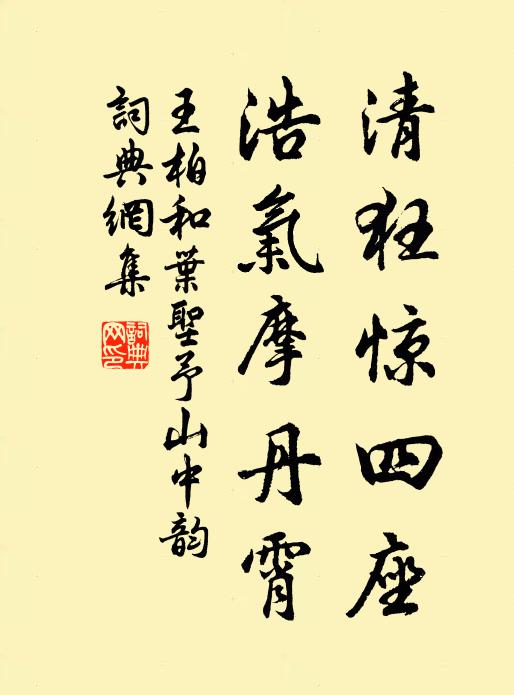 清狂惊四座
浩氣摩丹霄
王柏和葉聖予山中韵
詞典網集
詞典網印